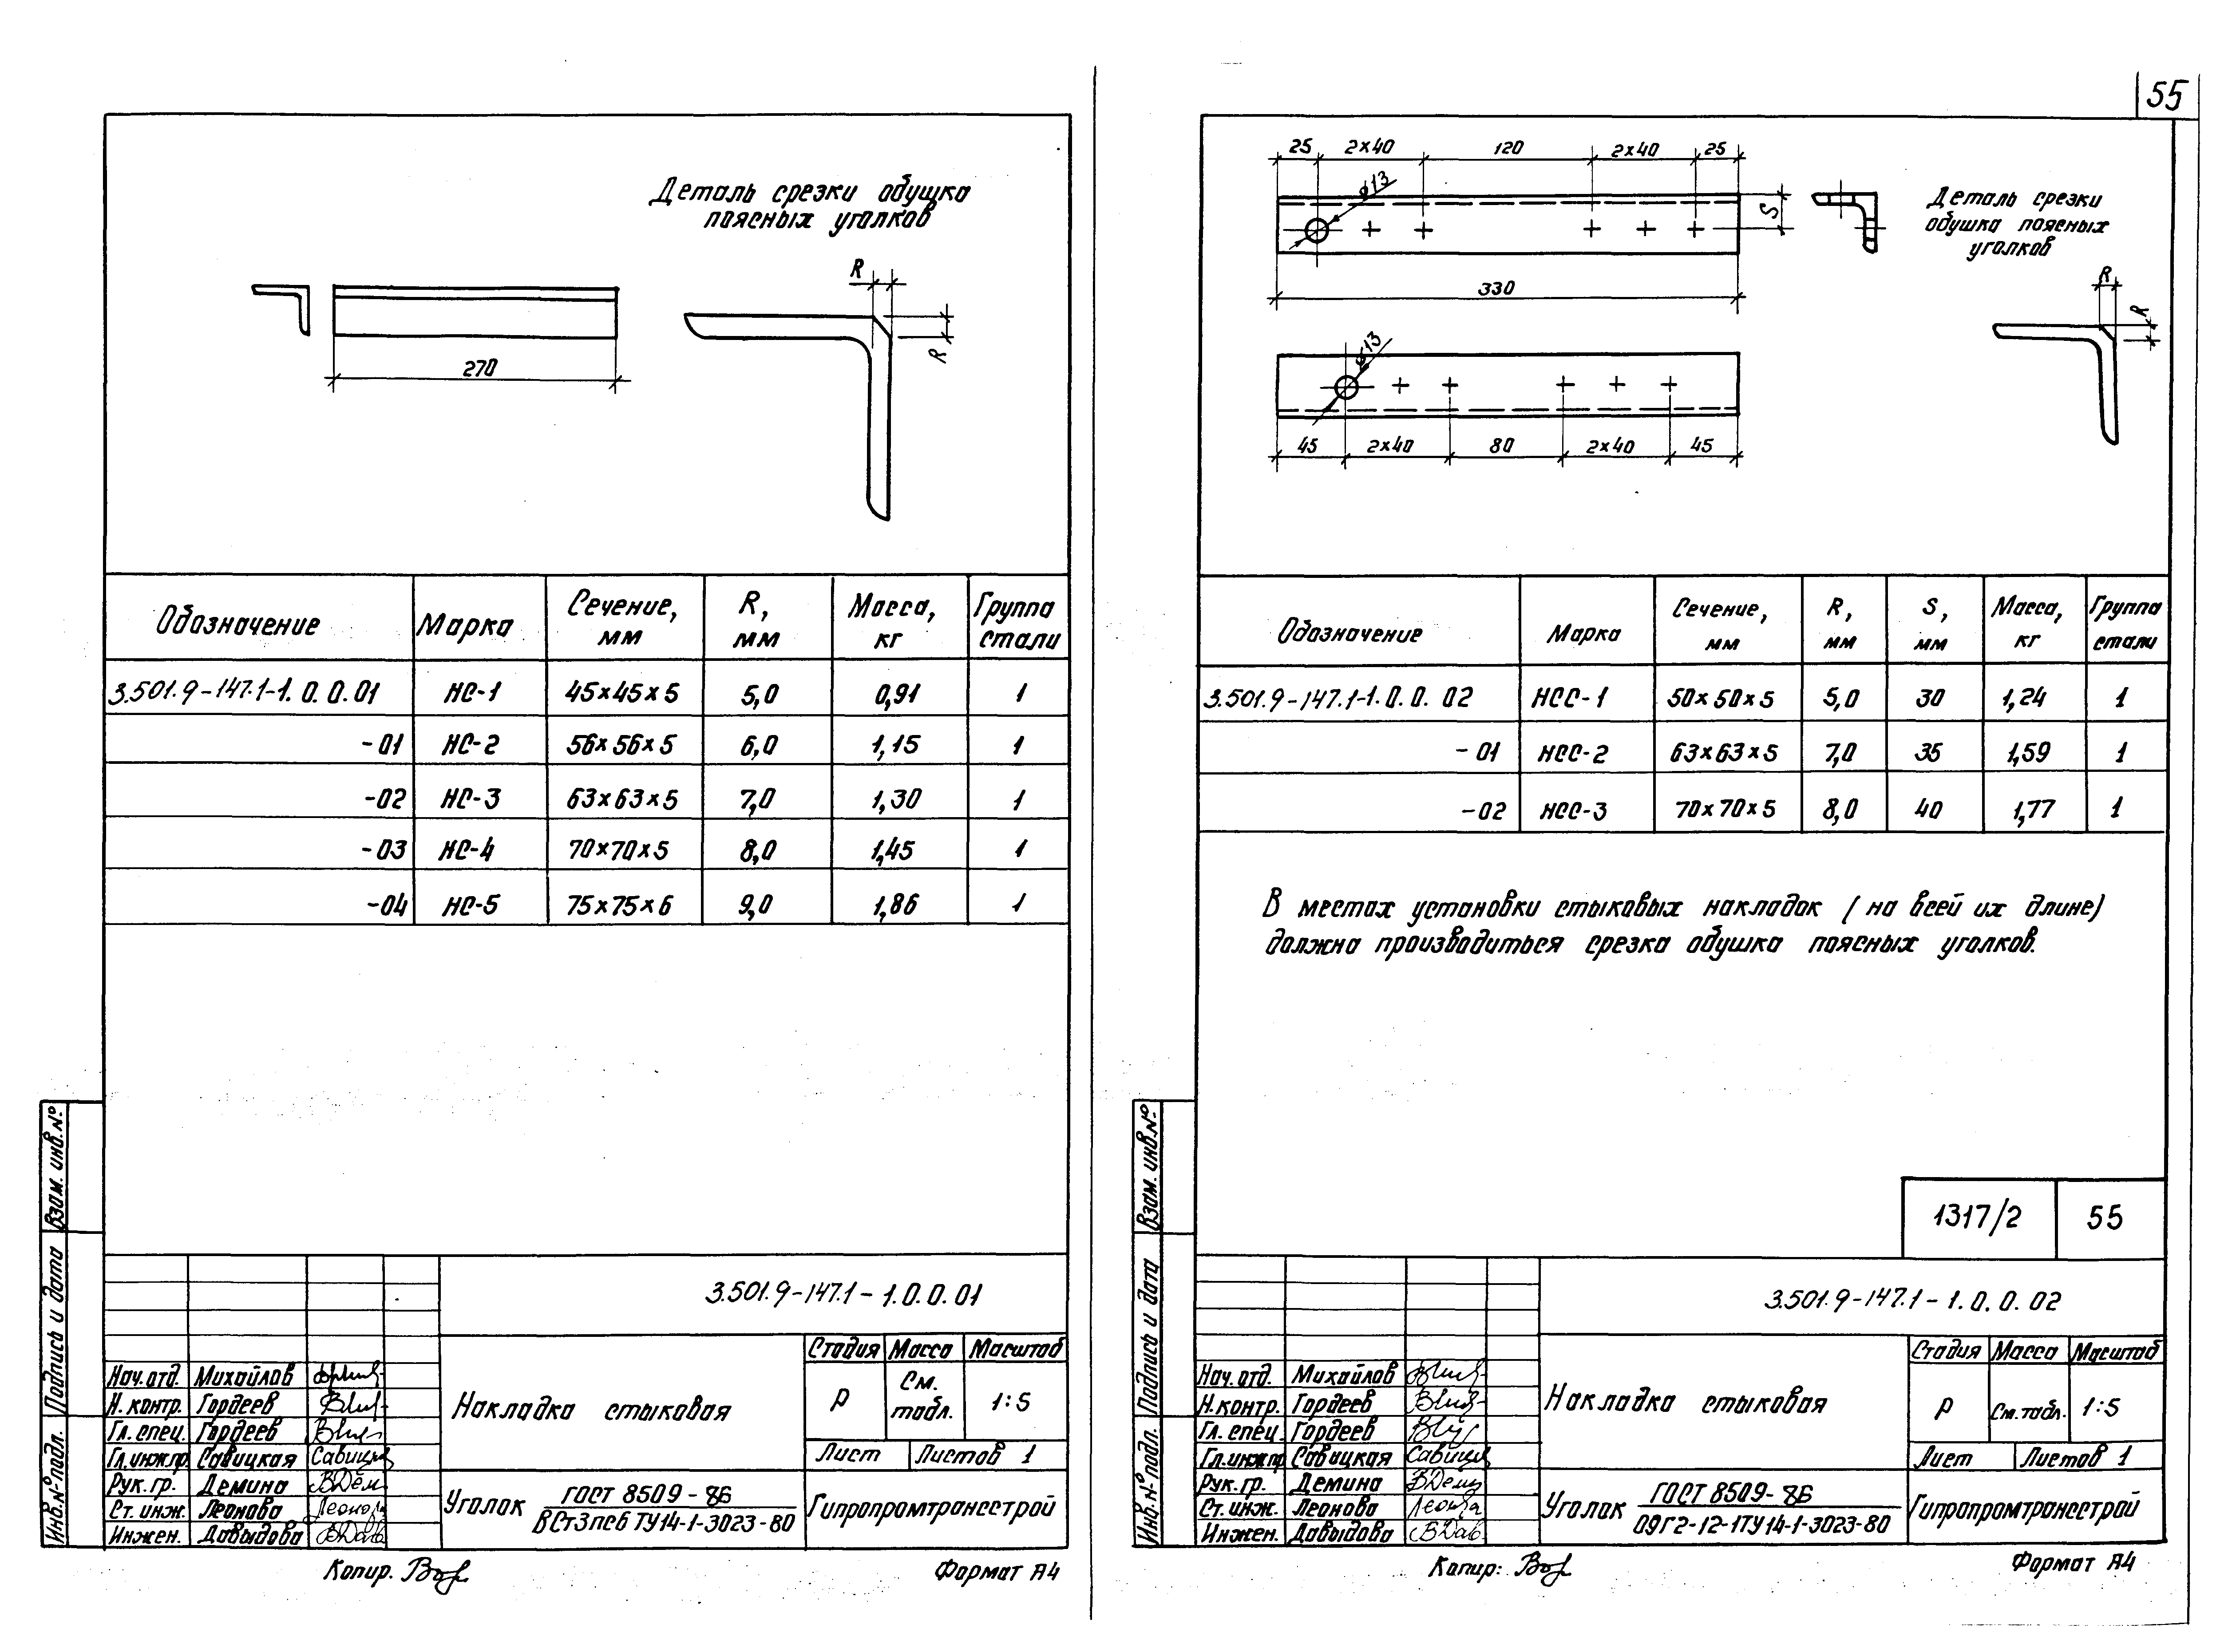 55
Деталь срезки обушка
поясных уголков
R
R
270
Обозначение Марка Сечение, мм R, мм Масса, кг Группа стали
3.501.9-147.1-1.0.0.01 НС-1 45×45×5 5,0 0,91 1
-01 НС-2 56×56×5 6,0 1,15 1
-02 НС-3 63×63×5 7,0 1,30 1
-03 НС-4 70×70×5 8,0 1,45 1
-04 НС-5 75×75×6 9,0 1,86 1
Взам. инв.№
Подпись и дата
Инв.№ подл.
3.501.9-147.1-1.0.0.01
Стадия Масса Масштаб
Р См. табл. 1:5
Лист Листов 1
Накладка стыковая
Нач.отд. Михайлов
Н.контр. Гордеев
Гл.спец. Гордеев
Гл.инж.пр. Савицкая
Рук.гр. Демина
Ст.инж. Леонова
Инжен. Давыдова
Уголок ГОСТ 8509-86
ВСт3пс6 ТУ14-1-3023-80
Гипропромтрансстрой
Копир.
Формат А4
25 2×40 120 2×40 25
⌀13
S
330
⌀13
45 2×40 80 2×40 45
Деталь срезки
обушка поясных
уголков
R
R
Обозначение Марка Сечение, мм R, мм S, мм Масса, кг Группа стали
3.501.9-147.1-1.0.0.02 НСС-1 50×50×5 5,0 30 1,24 1
-01 НСС-2 63×63×5 7,0 35 1,59 1
-02 НСС-3 70×70×5 8,0 40 1,77 1
В местах установки стыковых накладок (на всей их длине)
должна производиться срезка обушка поясных уголков.
1317/2 55
Взам. инв.№
Подпись и дата
Инв.№ подл.
3.501.9-147.1-1.0.0.02
Стадия Масса Масштаб
Р См.табл. 1:5
Лист Листов 1
Накладка стыковая
Нач.отд. Михайлов
Н.контр. Гордеев
Гл.спец. Гордеев
Гл.инж.пр Савицкая
Рук.гр. Демина
Ст.инж. Леонова
Инжен. Давыдова
Уголок ГОСТ 8509-86
09Г2-12-1ТУ14-1-3023-80
Гипропромтрансстрой
Копир:
Формат А4